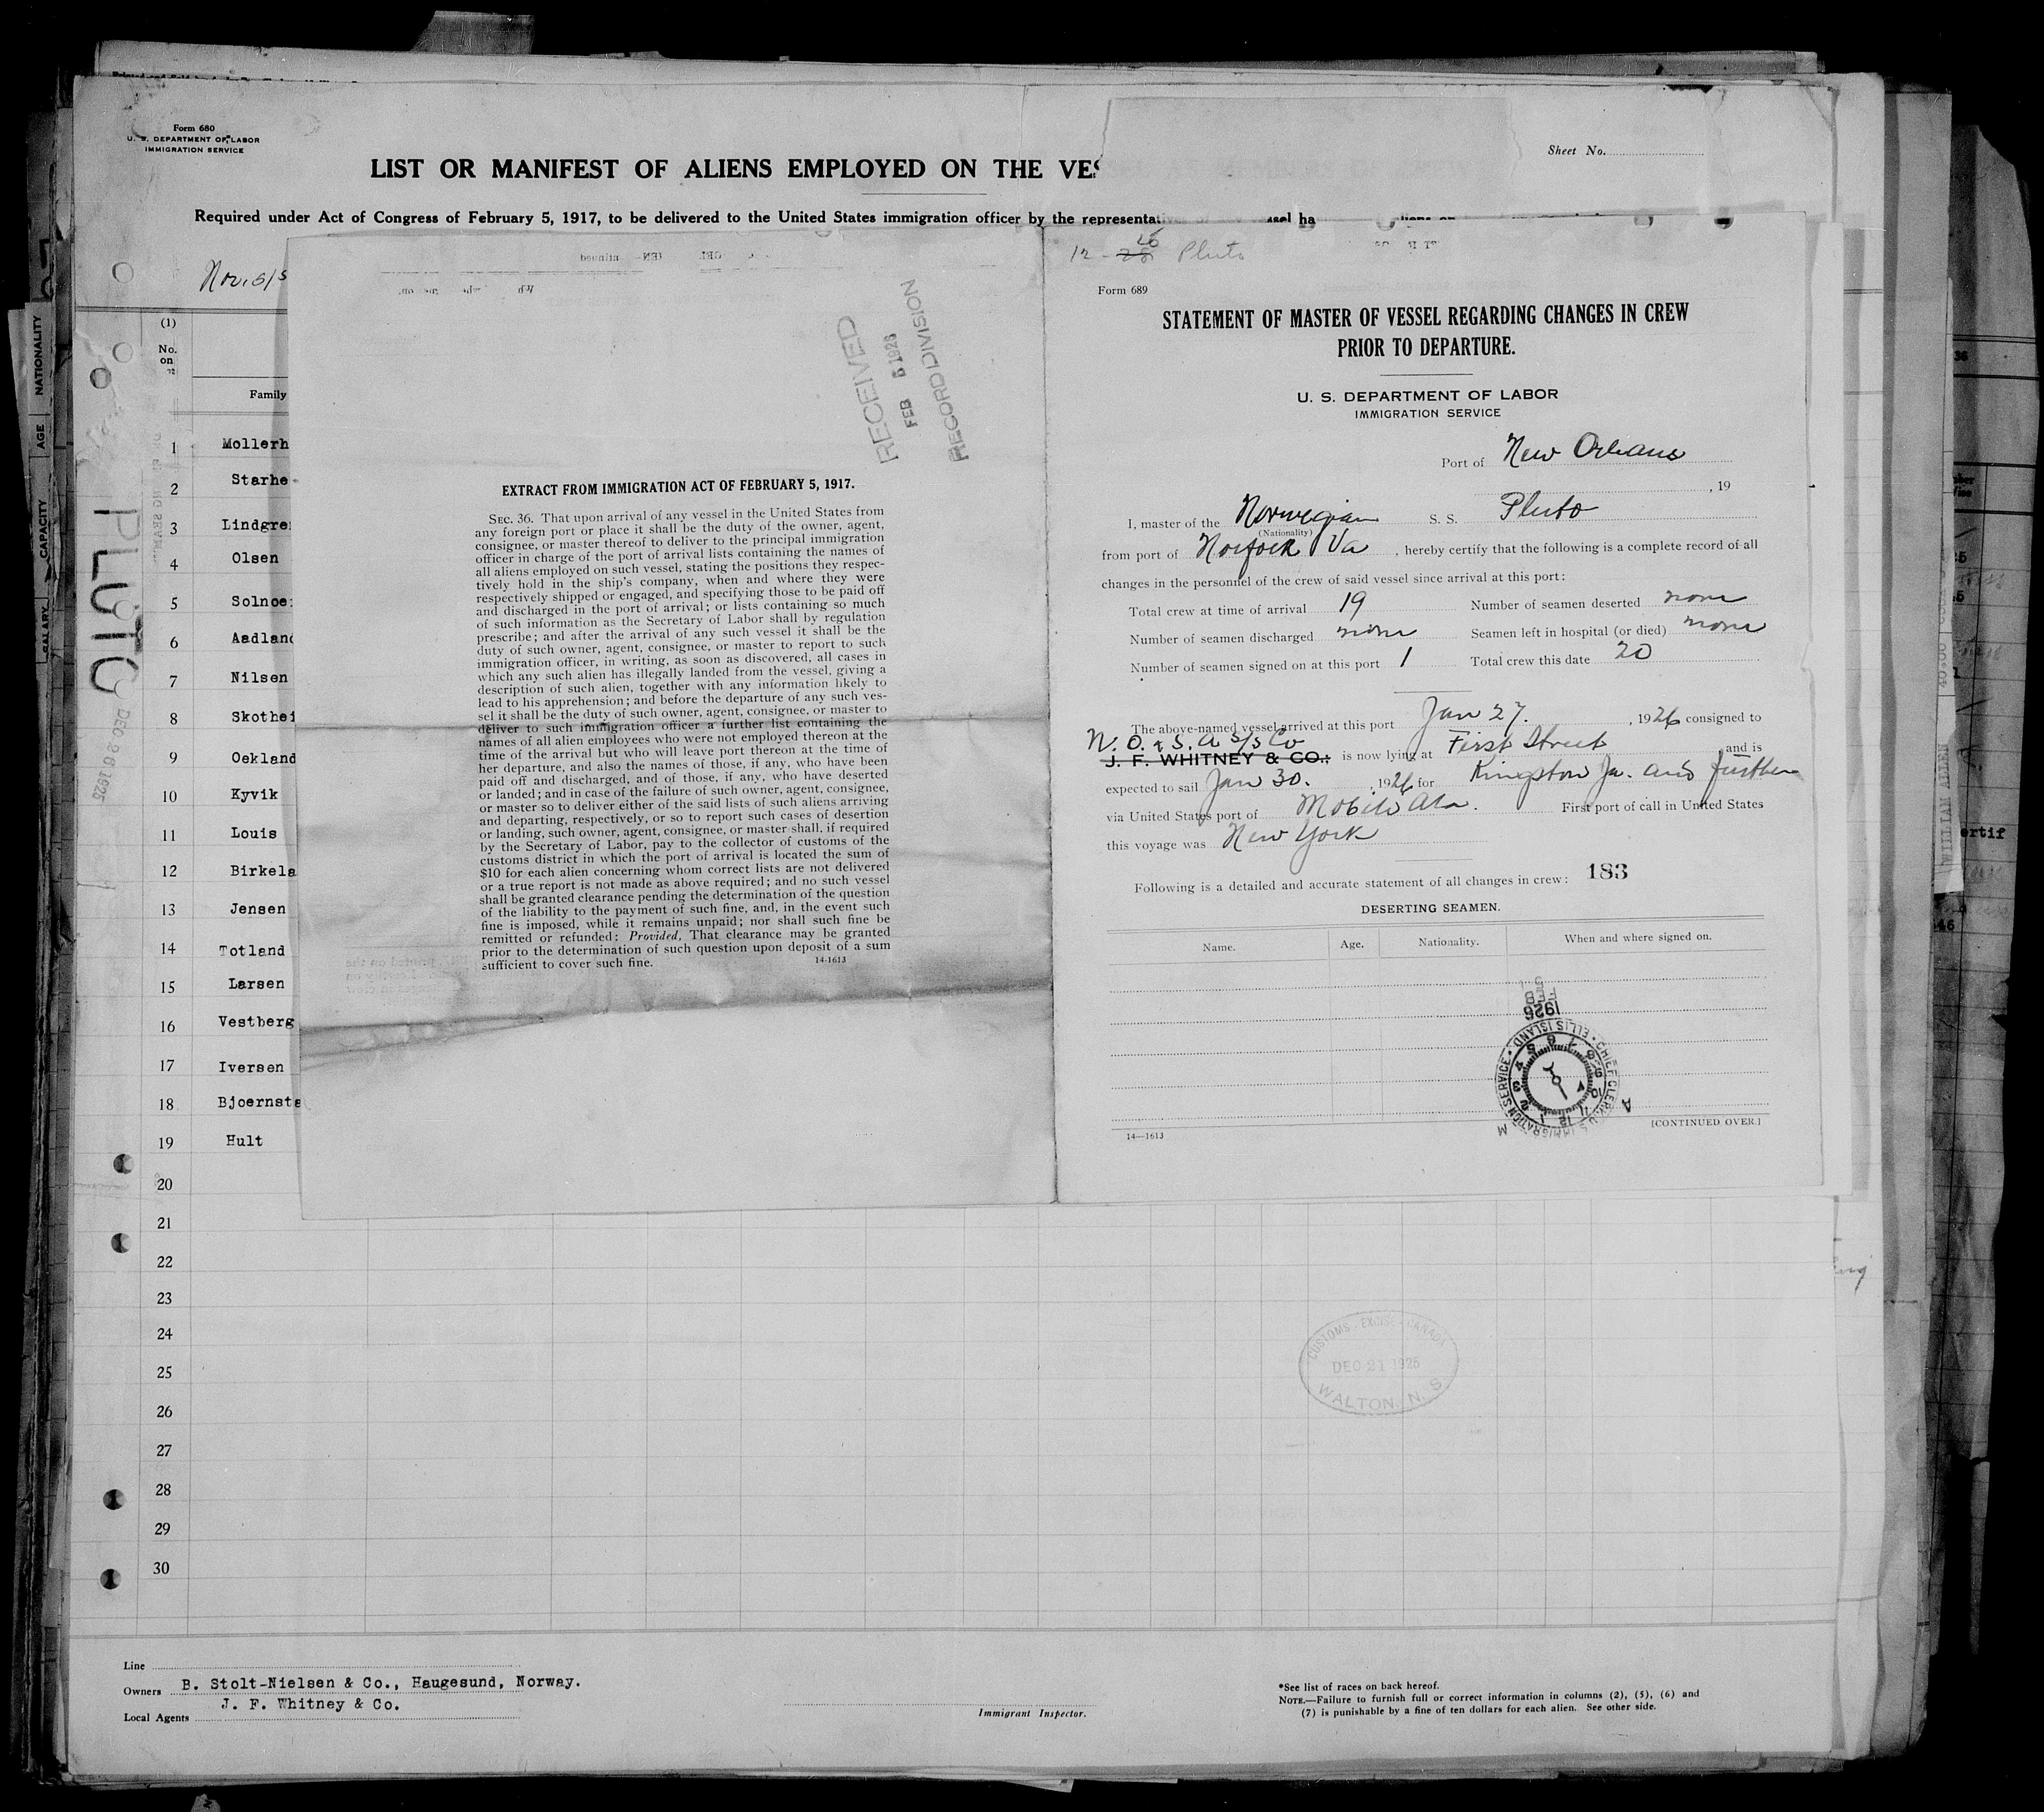 Form 680
U. S. DEPARTMENT OF LABOR
IMMIGRATION SERVICE
Sheet No.
LIST OR MANIFEST OF ALIENS EMPLOYED ON THE VES
Required under Act of Congress of February 5, 1917, to be delivered to the United States immigration officer by the representa
NATIONALITY
AGE
CAPACITY
SALARY
PLUTO
DEC 26 1925
(1)
No.
on
Family
1 Mollerh
2 Starhe
3 Lindgre
4 Olsen
5 Solnoe
6 Aadland
7 Nilsen
8 Skothei
9 Oekland
10 Kyvik
11 Louis
12 Birkela
13 Jensen
14 Totland
15 Larsen
16 Vestberg
17 Iversen
18 Bjoernsta
19 Hult
20
21
22
23
24
25
26
27
28
29
30
RECEIVED
FEB 6 1926
RECORD DIVISION
EXTRACT FROM IMMIGRATION ACT OF FEBRUARY 5, 1917.
SEC. 36. That upon arrival of any vessel in the United States from
any foreign port or place it shall be the duty of the owner, agent,
consignee, or master thereof to deliver to the principal immigration
officer in charge of the port of arrival lists containing the names of
all aliens employed on such vessel, stating the positions they respec-
tively hold in the ship's company, when and where they were
respectively shipped or engaged, and specifying those to be paid off
and discharged in the port of arrival; or lists containing so much
of such information as the Secretary of Labor shall by regulation
prescribe; and after the arrival of any such vessel it shall be the
duty of such owner, agent, consignee, or master to report to such
immigration officer, in writing, as soon as discovered, all cases in
which any such alien has illegally landed from the vessel, giving a
description of such alien, together with any information likely to
lead to his apprehension; and before the departure of any such ves-
sel it shall be the duty of such owner, agent, consignee, or master to
deliver to such immigration officer a further list containing the
names of all alien employees who were not employed thereon at the
time of the arrival but who will leave port thereon at the time of
her departure, and also the names of those, if any, who have been
paid off and discharged, and of those, if any, who have deserted
or landed; and in case of the failure of such owner, agent, consignee,
or master so to deliver either of the said lists of such aliens arriving
and departing, respectively, or so to report such cases of desertion
or landing, such owner, agent, consignee, or master shall, if required
by the Secretary of Labor, pay to the collector of customs of the
customs district in which the port of arrival is located the sum of
$10 for each alien concerning whom correct lists are not delivered
or a true report is not made as above required; and no such vessel
shall be granted clearance pending the determination of the question
of the liability to the payment of such fine, and, in the event such
fine is imposed, while it remains unpaid; nor shall such fine be
remitted or refunded: Provided, That clearance may be granted
prior to the determination of such question upon deposit of a sum
sufficient to cover such fine.
14-1613
12 - 26 Pluto
Form 689
STATEMENT OF MASTER OF VESSEL REGARDING CHANGES IN CREW
PRIOR TO DEPARTURE.
U. S. DEPARTMENT OF LABOR
IMMIGRATION SERVICE
Port of New Orleans
, 19
I, master of the Norwegian S. S. Pluto
(Nationality)
from port of Norfolk Va , hereby certify that the following is a complete record of all
changes in the personnel of the crew of said vessel since arrival at this port:
Total crew at time of arrival 19 Number of seamen deserted none
Number of seamen discharged none Seamen left in hospital (or died) none
Number of seamen signed on at this port 1 Total crew this date 20
The above-named vessel arrived at this port Jan 27. , 1926 consigned to
N. O. & S. A S/S Co
J. F. WHITNEY & CO., is now lying at First Street and is
expected to sail Jan 30. , 1926 for Kingston Ja. and further
via United States port of Mobile Ala. First port of call in United States
this voyage was New York
Following is a detailed and accurate statement of all changes in crew: 183
DESERTING SEAMEN.
Name. Age. Nationality. When and where signed on.
FEB 5
1926
CHIEF CLERK, U.S. IMMIGRATION SERVICE • ELLIS ISLAND •
1 2 3 4 5 6 7 8 9 10 11 12
A M
14—1613
[CONTINUED OVER.]
CUSTOMS - EXCISE - CANADA
DEC 21 1925
WALTON. N. S
Line
Owners B. Stolt-Nielsen & Co., Haugesund, Norway.
Local Agents J. F. Whitney & Co.
Immigrant Inspector.
*See list of races on back hereof.
NOTE.—Failure to furnish full or correct information in columns (2), (5), (6) and
(7) is punishable by a fine of ten dollars for each alien. See other side.